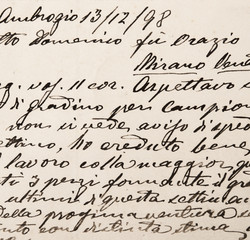 Ambrogio 13/12/98
tto Domenico fù Orazio
Mirano Vene
g. vos. 11 cor. Aspettavo
di gradino per campio
non si vede, aviso di sped
ettino, ho creduto bene
lavoro colla maggior
ti 3 pezzi formante il g
ultimi di questa settim
della prossima ventura
con distinta stima